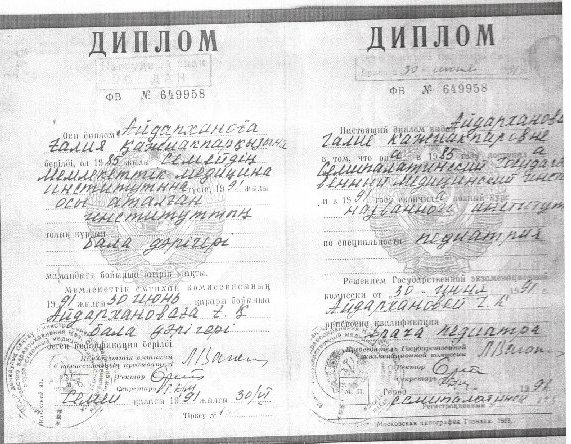 ДИПЛОМ
ФВ № 649958
Осы диплом Айдархановаға
Ғалия Қажиакпарқызына
берілді, ол 1985 жылы Семейдің
Мемлекеттік медицина
институтына түсіп, 1991 жылы
осы аталған
институттың
толық курсын
бала дәрігері
мамандығы бойынша бітіріп шықты.
Мемлекеттік емтихан комиссиясының
1991 жылғы 30 июнь қарары бойынша
Айдархановаға Г. Қ
бала дәрігері
деген квалификация берілді
Ректор
Секретарь
Семей қаласы 1991 жылғы 30/VI
Тіркеу №
ДИПЛОМ
30 июня
ФВ № 649958
Настоящий диплом выдан Айдархановой
Галие Кажиакпаровне
в том, что она в 1985 году поступила
Семипалатинский государст
венный медицинский инст
и в 1991 году окончила полный курс
названного института
по специальности педиатрия
Решением Государственной экзаменационной
комиссии от 30 июня 1991 г.
Айдархановой Г. К
присвоена квалификация
врача педиатра
Председатель Государственной
экзаменационной комиссии
Ректор
Секретарь
М. П.
Город 1991
Семипалатинск
Регистрационный №
Московская типография Гознака. 1988.